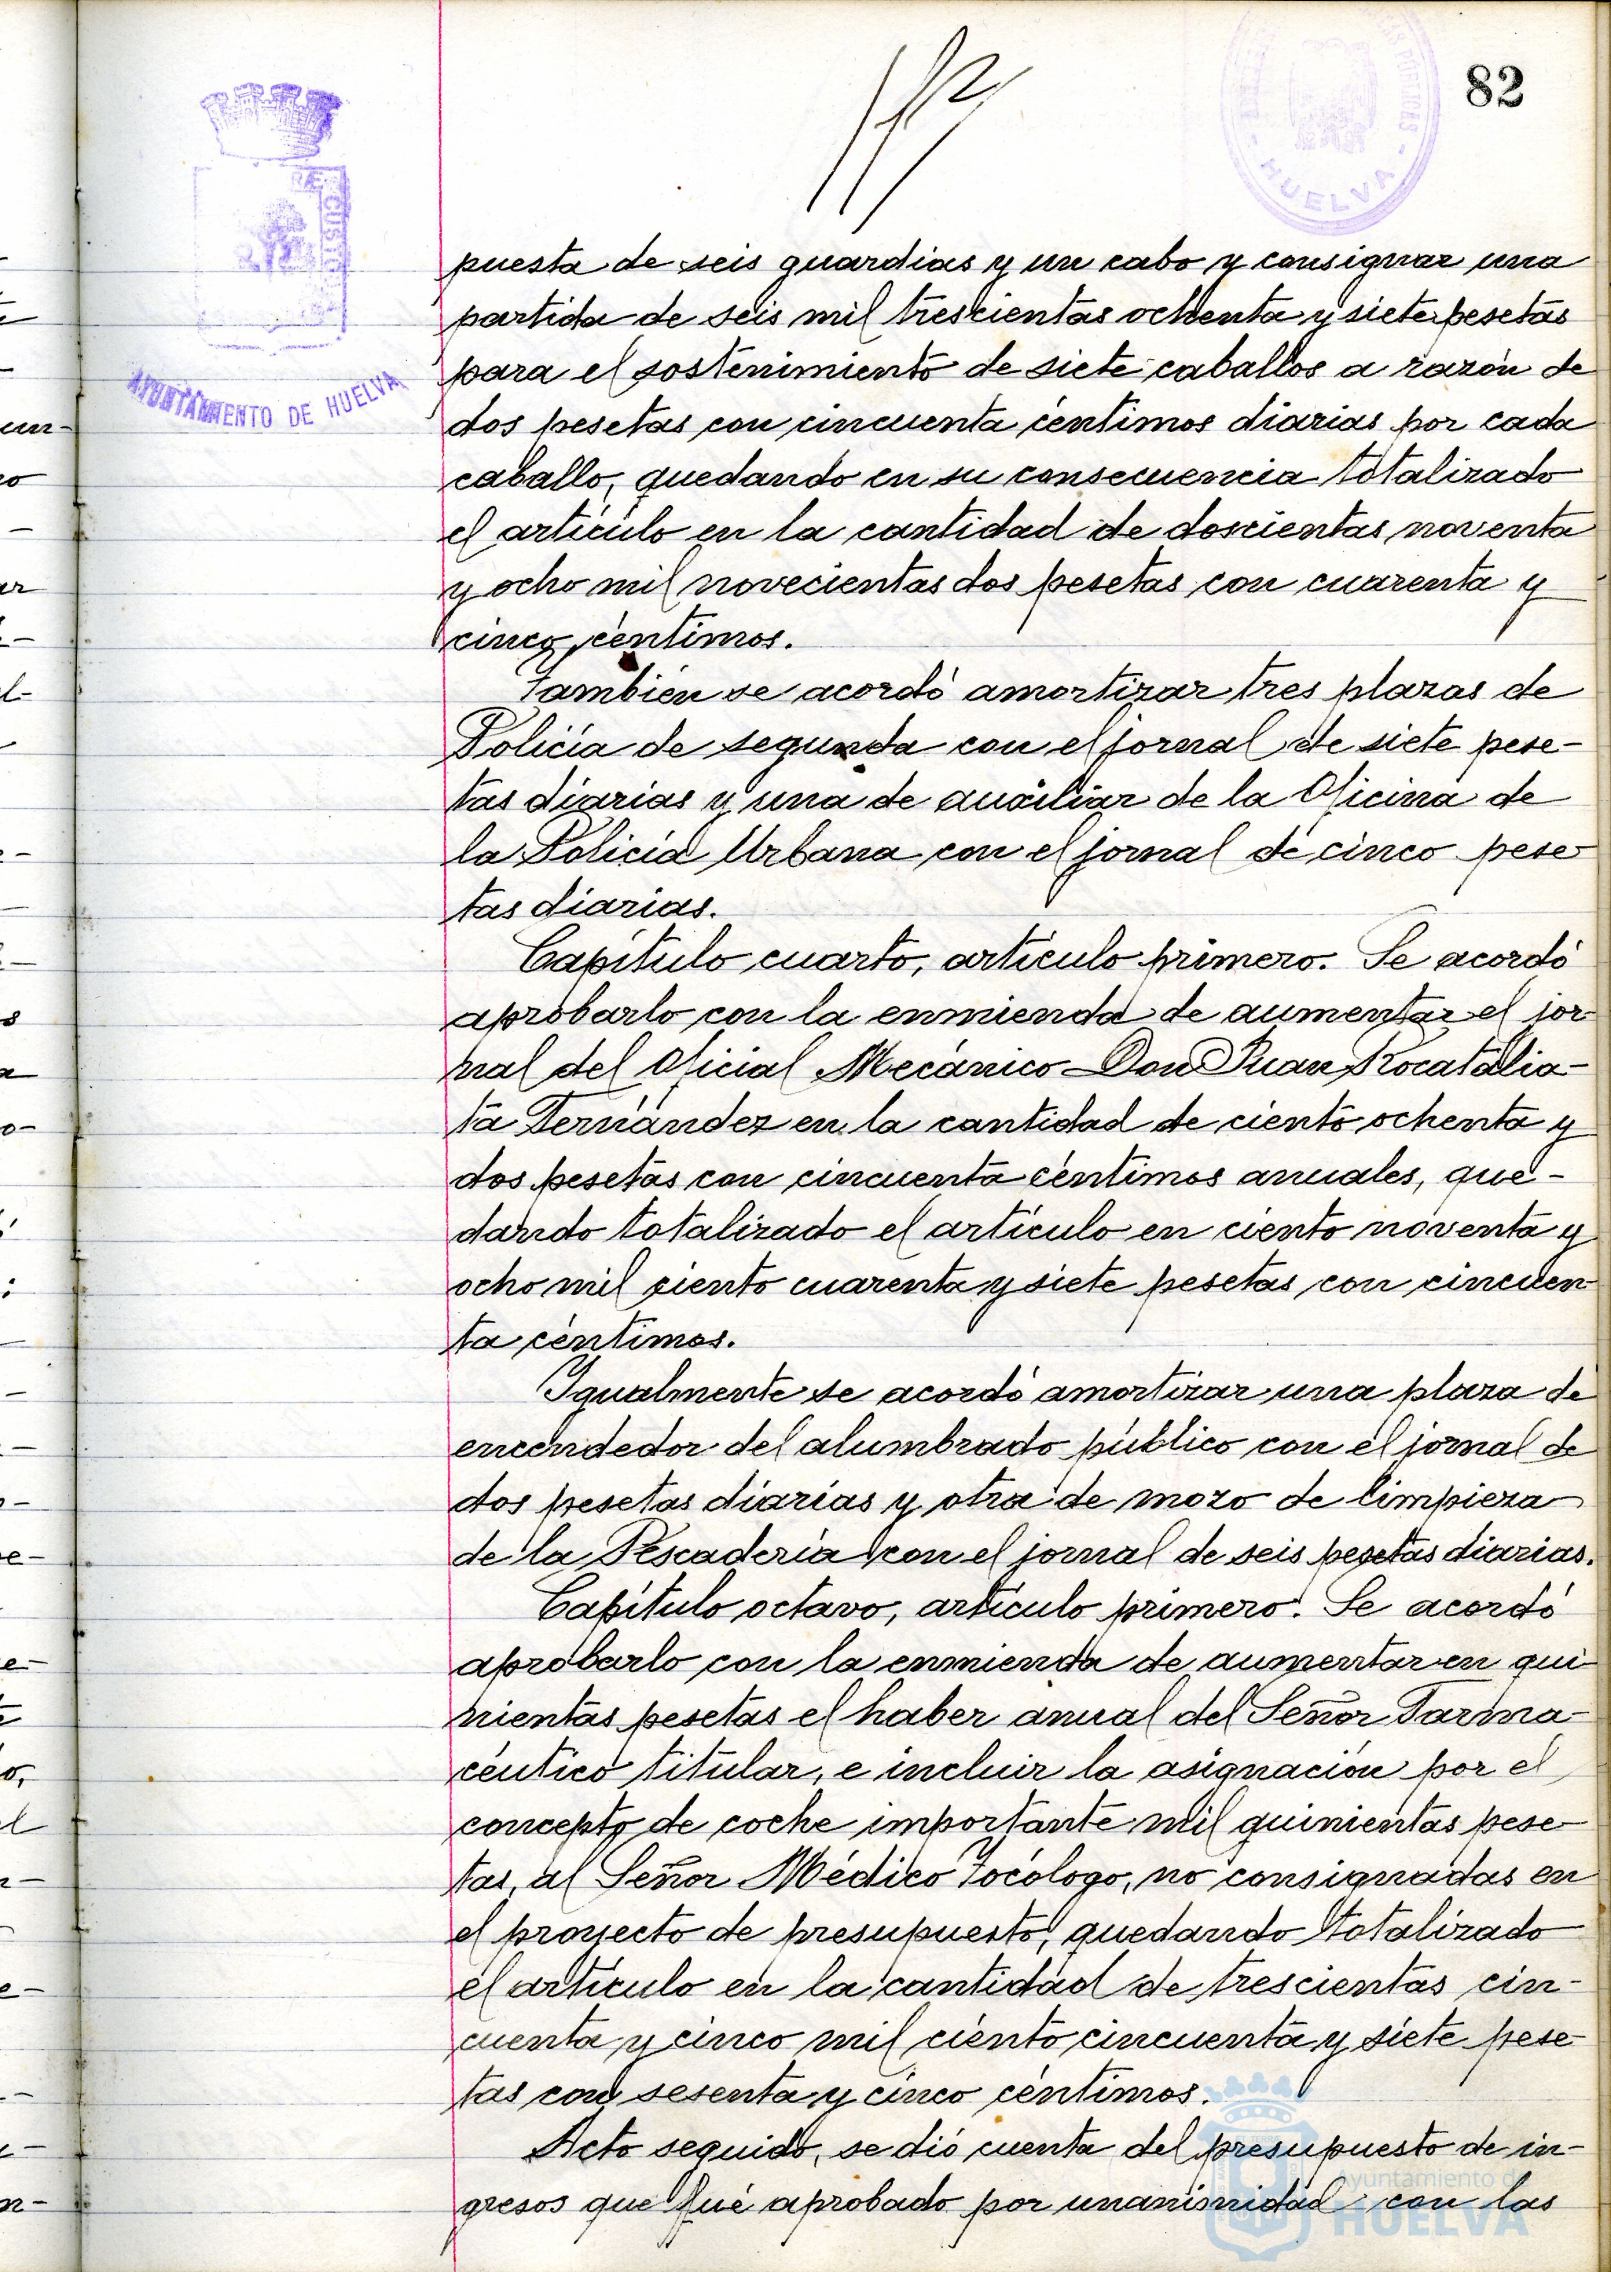 82
HUELVA
RÆ CUSTO
AYUNTAMIENTO DE HUELVA
puesta de seis guardias y un cabo y consignar una
partida de seis mil trescientas ochenta y siete pesetas
para el sostenimiento de siete caballos a razón de
dos pesetas con cincuenta céntimos diarias por cada
caballo, quedando en su consecuencia totalizado
el artículo en la cantidad de doscientas noventa
y ocho mil novecientas dos pesetas con cuarenta y
cinco céntimos.
También se acordó amortizar tres plazas de
Policía de segunda con el jornal de siete pese-
tas diarias y una de auxiliar de la Oficina de
la Policía Urbana con el jornal de cinco pese
tas diarias.
Capítulo cuarto, artículo primero. Se acordó
aprobarlo con la enmienda de aumentar el jor
nal del Oficial Mecánico Don Juan Rocatalia-
ta Fernández en la cantidad de ciento ochenta y
dos pesetas con cincuenta céntimos anuales, que-
dando totalizado el artículo en ciento noventa y
ocho mil ciento cuarenta y siete pesetas con cincuen
ta céntimos.
Igualmente se acordó amortizar una plaza de
encendedor del alumbrado público con el jornal de
dos pesetas diarias y otra de mozo de limpieza
de la Pescadería con el jornal de seis pesetas diarias.
Capítulo octavo, artículo primero. Se acordó
aprobarlo con la enmienda de aumentar en qui
nientas pesetas el haber anual del Señor Farma-
céutico titular, e incluir la asignación por el
concepto de coche importante mil quinientas pese-
tas, al Señor Médico Tocólogo, no consignadas en
el proyecto de presupuesto, quedando totalizado
el artículo en la cantidad de trescientas cin-
cuenta y cinco mil ciento cincuenta y siete pese
tas con sesenta y cinco céntimos.
Acto seguido, se dió cuenta del presupuesto de in-
gresos que fué aprobado por unanimidad con las
ayuntamiento de
HUELVA